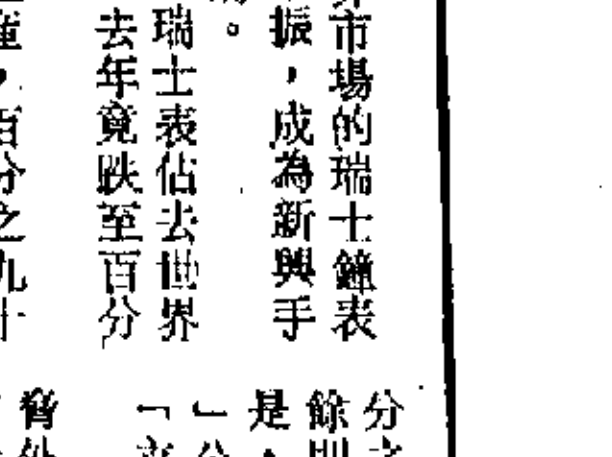 市場的瑞士鐘表
振，成為新興手
。
瑞士表佔去世界
去年竟跌至百分
，百分之九十
分
餘
是，
」
「
脅